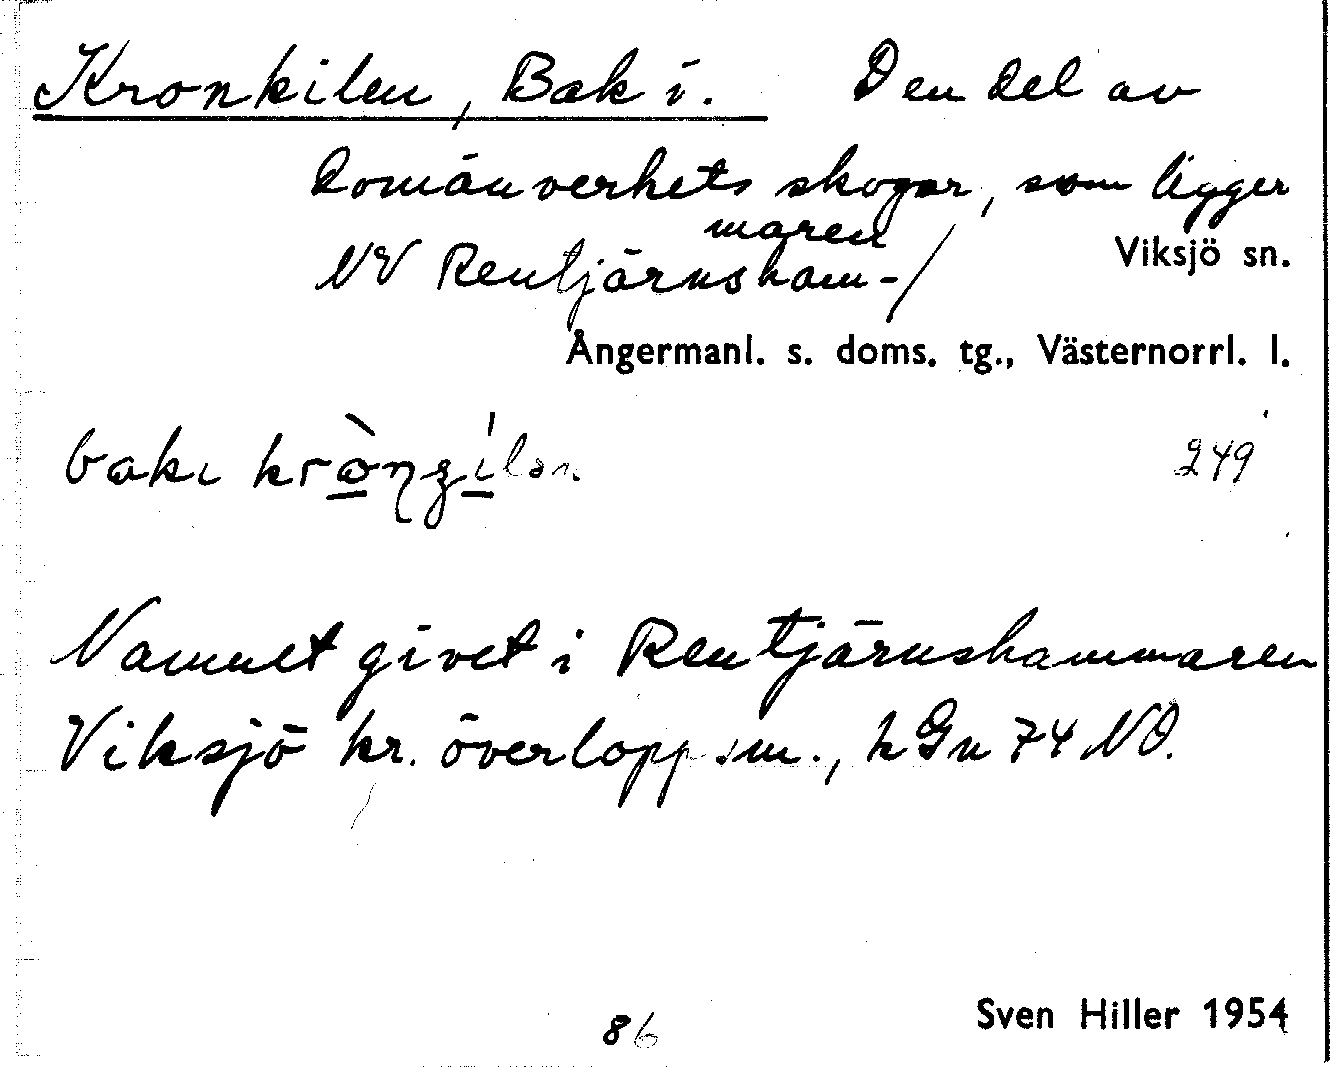 Kronkilen, Bak i. Den del av
Domänverkets skogar, som ligger
NV Rentjärnsham-/maren
Viksjö sn.
Ångermanl. s. doms. tg., Västernorrl. l.
249
Namnet givet i Rentjärnshammaren
Viksjö kr. överloppsm., hGn 74 NO.
86
Sven Hiller 1954